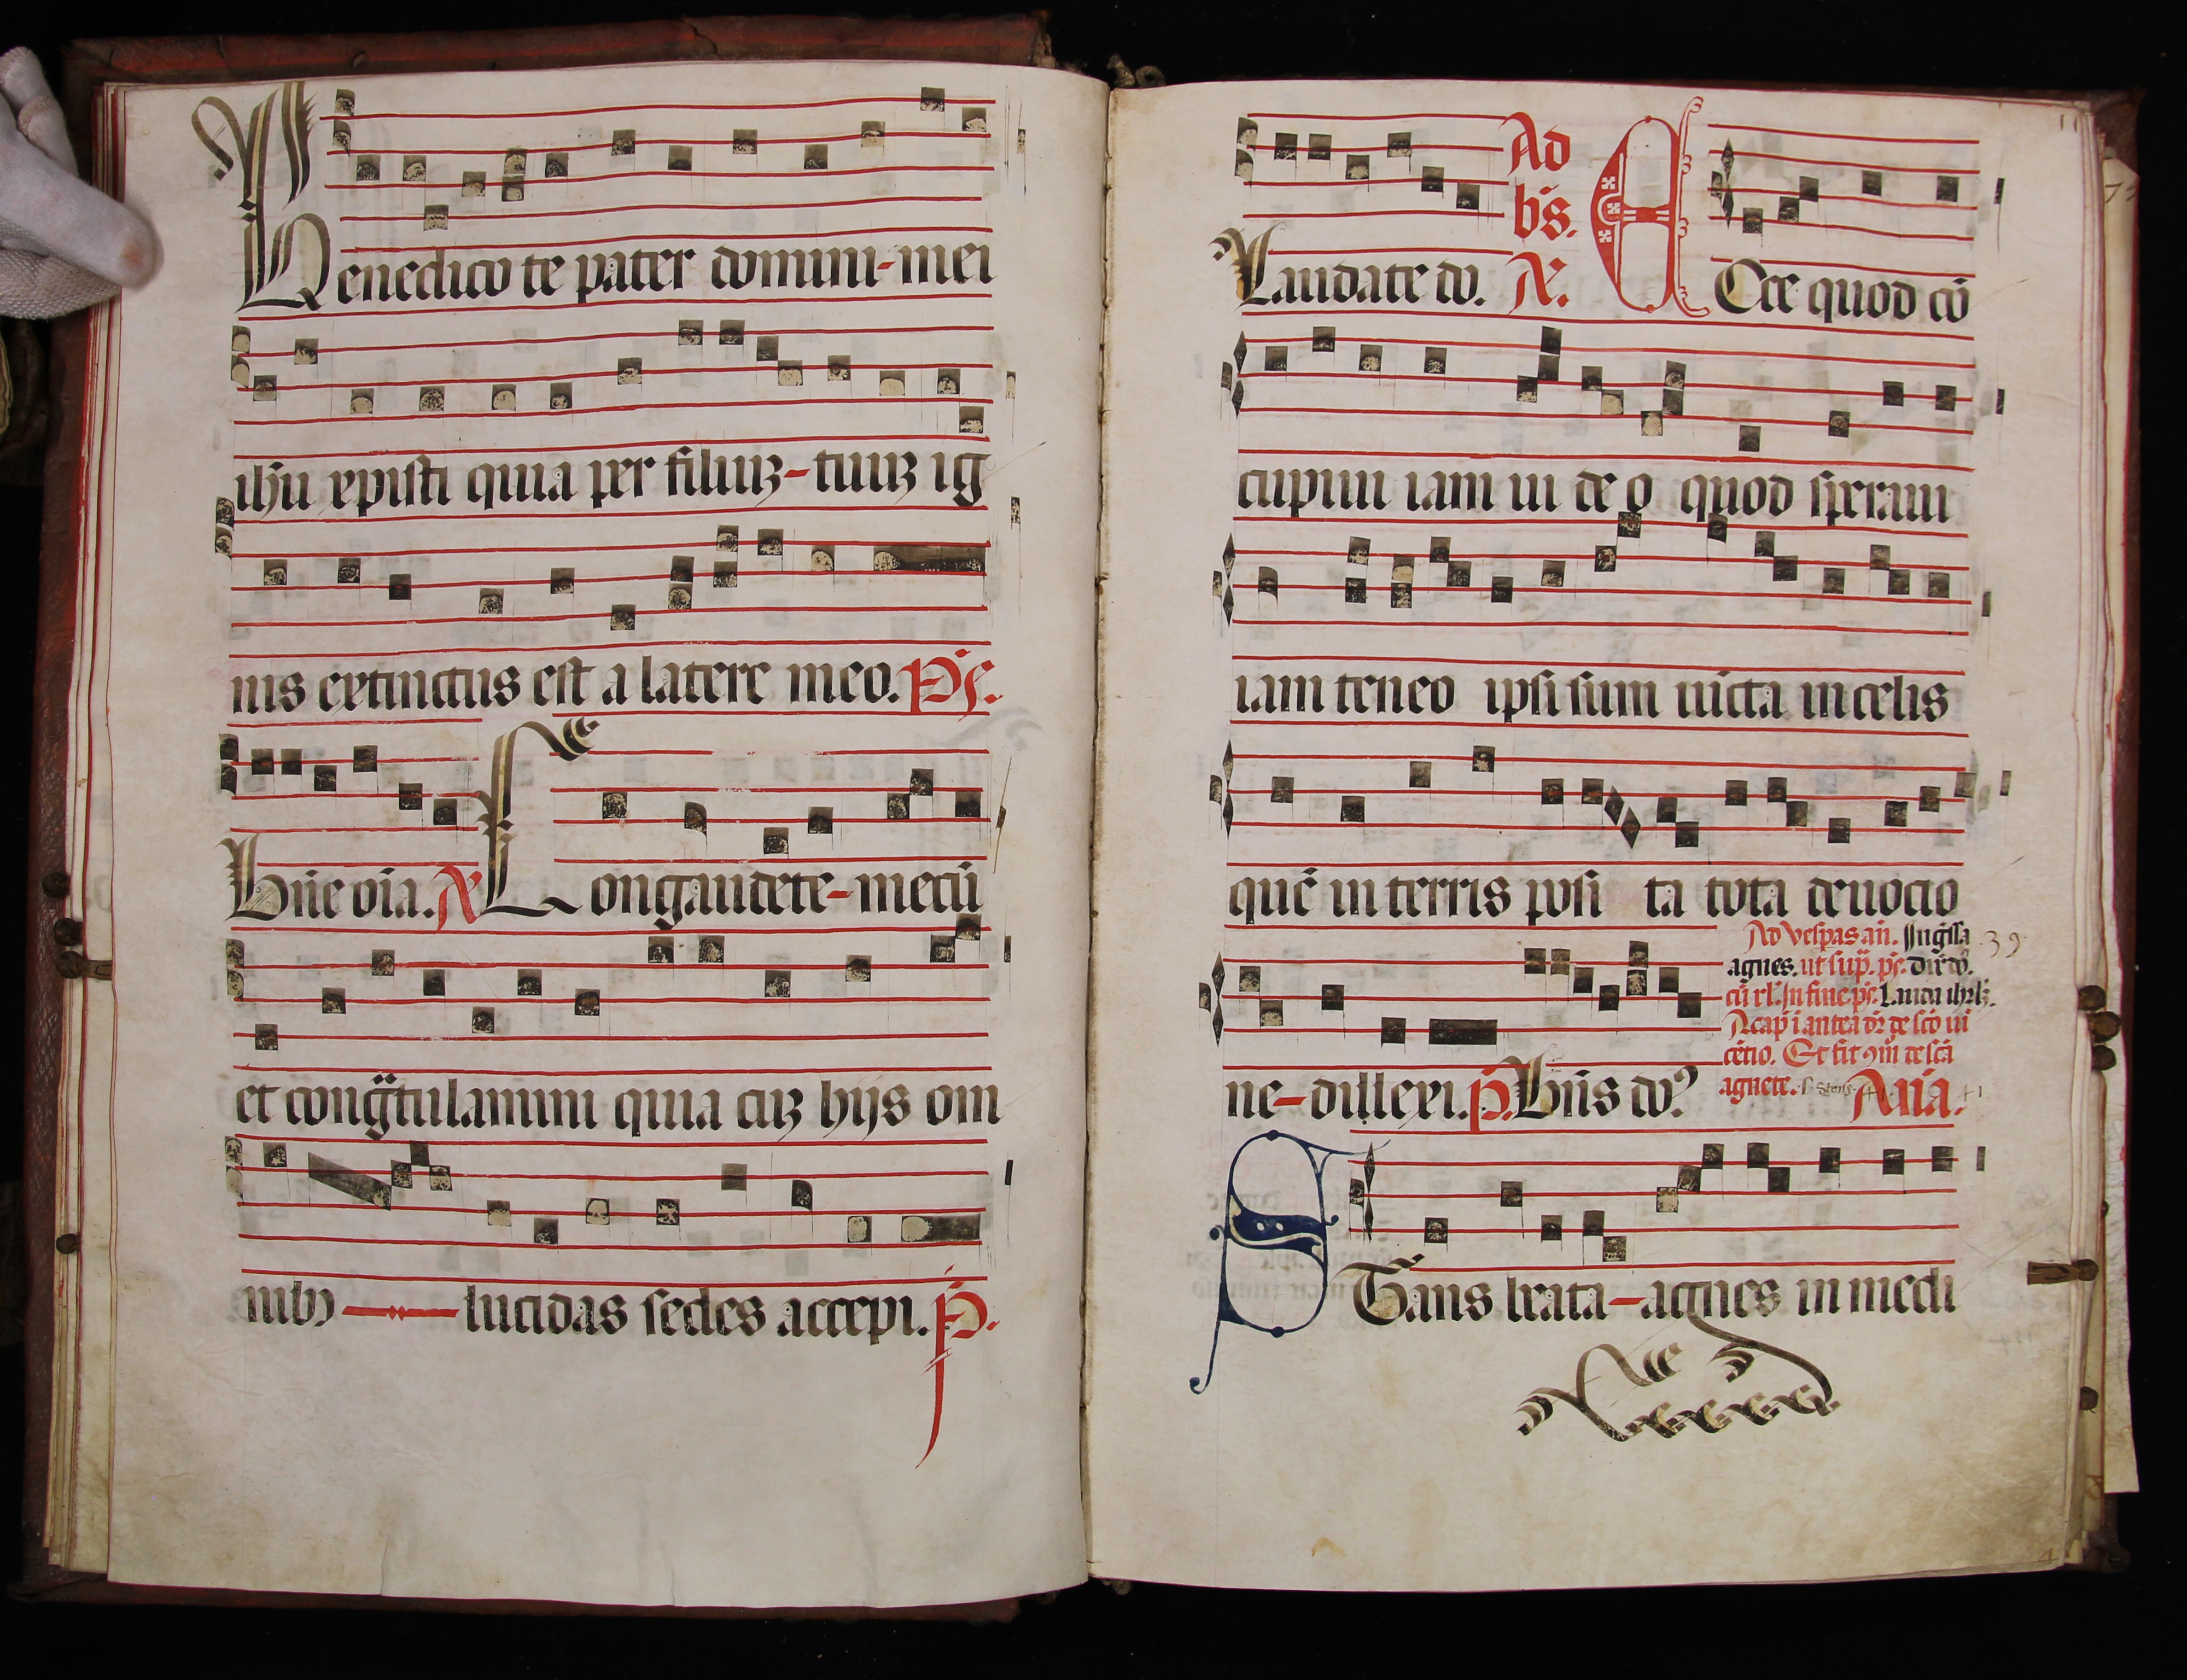 Benedico te pater domini-mei
ihū xpisti quia per filiuꝫ-tuuꝫ ig
nis extinctus est a latere meo. Ps.
Bn̄e oīa. A Congaudete-mecū
et congᷓtulamini quia cuꝫ hijs om
nibꝰ — lucidas sedes accepi. p̄.
11
Ad
bn̄s.
Laudate do. A. Ecce quod cō
cupiui iam ui de o quod speraui
iam teneo ipsi sum iūcta in celis
quē in terris posi ta tota deuocio
ne-dillexi. p̄. Bn̄s doꝰ
Ad vesp̄as an̄. Ingr̄ssa
39
agnes. ut sup̄. ps. dix̄ do.
cū rl'. In fine ps. Lauda ihrl̄m.
cap̄ī antea dr̄ de sc̄o ui
cētio. Et fit 9m̄ de sc̄a
agnete. Aña.
Stans beata-agnes in medi